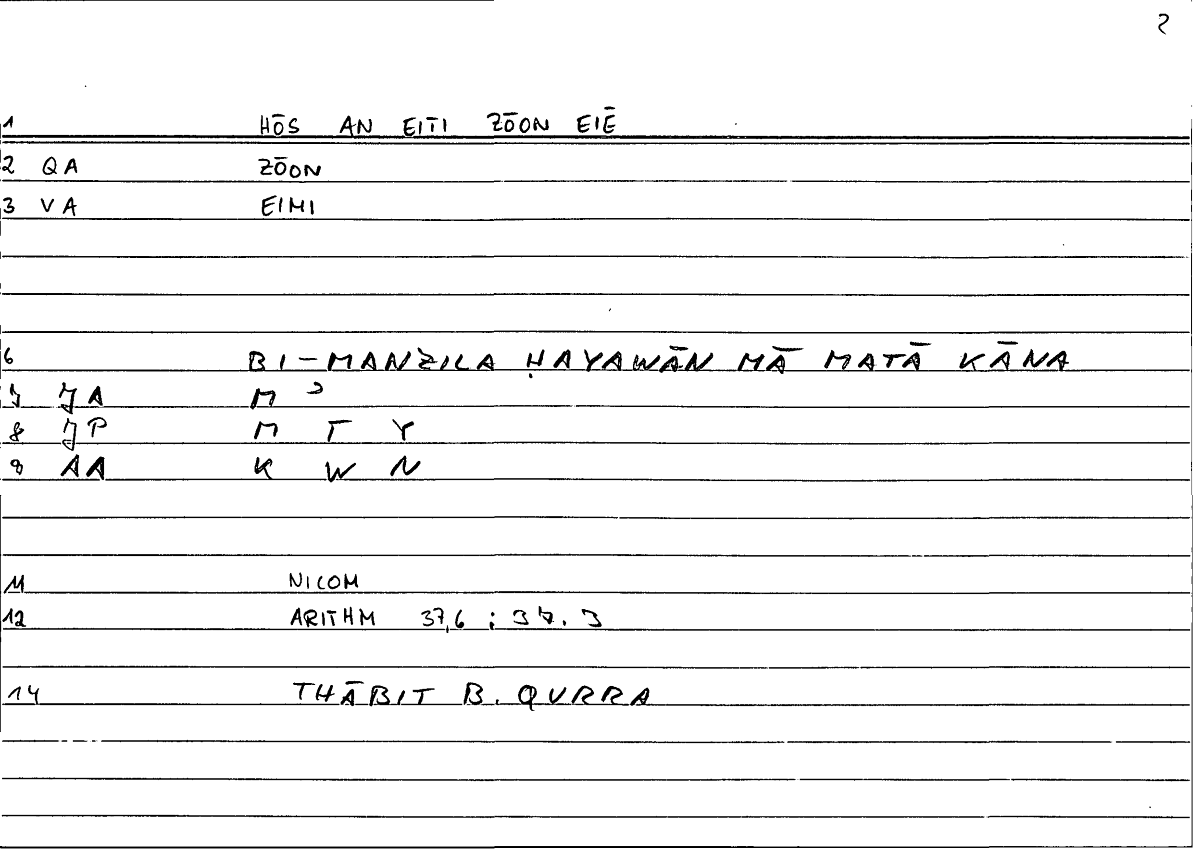 2
1 HŌS AN EITI ZŌON EIĒ
2 QA ZŌON
3 VA EIMI
6 BI-MANZILA ḤAYAWĀN MĀ MATĀ KĀNA
7 JA M ʾ
8 JP M T Y
9 AA K W N
11 NICOM
12 ARITHM 37,6 ; 37.3
14 THĀBIT B. QURRA